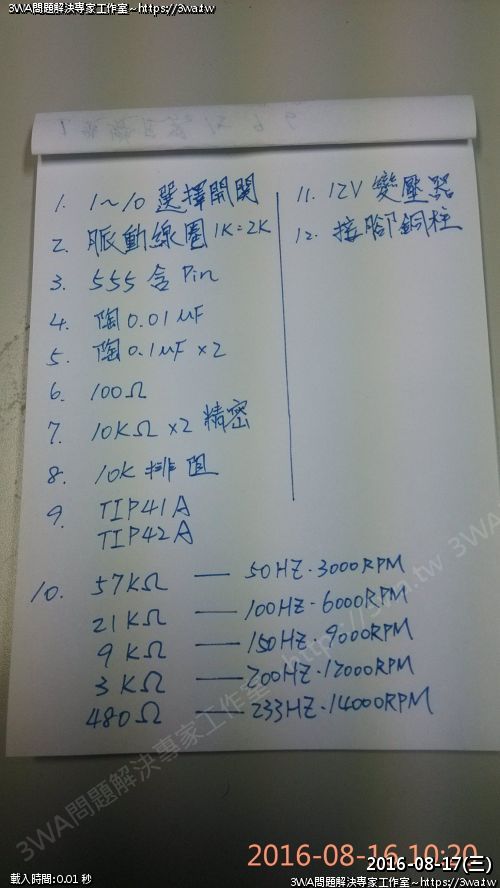 3WA問題解決專家工作室~https://3wa.tw
1. 1~10 選擇開関
2. 脈動線圈 1K=2K
3. 555 含 Pin
4. 陶 0.01 μF
5. 陶 0.1 μF ×2
6. 100Ω
7. 10KΩ ×2 精密
8. 10K 排阻
9. TIP41A
TIP42A
10. 57KΩ — 50HZ·3000RPM
21KΩ — 100HZ·6000RPM
9KΩ — 150HZ·9000RPM
3KΩ — 200HZ·12000RPM
480Ω — 233HZ·14000RPM
11. 12V 變壓器
12. 接腳銅柱
3WA問題解決專家工作室~https://3wa.tw 3WA
2016-08-16 10:20
2016-08-17(三)
載入時間:0.01 秒
3WA問題解決專家工作室~https://3wa.tw